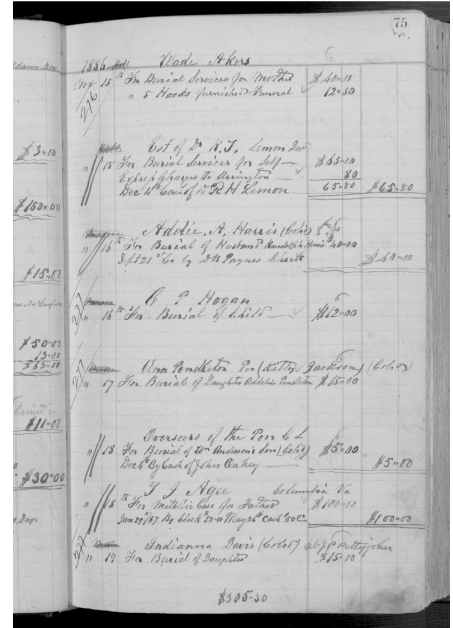 75
1886 Wade Akers
15th For Burial Services for Mother $40-00
" 5 Hacks furnished Funeral 12-50
226
Est of Dr Lemon
" 15 For Burial Services for Self $65-00
Express Charges to Arrington 80
Dec 4th Cash of R H Lemon 65-80 $65-80
Addie A. Harris (Cold)
" 16th For Burial of Husband Randolph Harris $40-00
Sept 21st Co by Dr Paynes Check $40-00
227
C P Hogan
" 16th For Burial of Child $12-00
227
Ann Pendleton Por (Kitty Jackson) (Color)
" 17 For Burial of Daughter Pendleton $15-00
Overseers of the Poor C L
" 18 For Burial of Wm Anderson Son (Cold) $5-00
Dec By Cash of John Oakey $5-00
T J Agee Columbia Va
" 18th For Metalic Case for Father $100-00
Jan 29th 87 By Check 50-00 May 26th Cash 50 $100-00
227
Indianna Davis (Color) at J P Pettyjohn
" 19 For Burial of Daughter $15-00
$305-30
$3-00
$150-00
$15-00
$50-00
13-00
$63-00
$11-00
$30-00